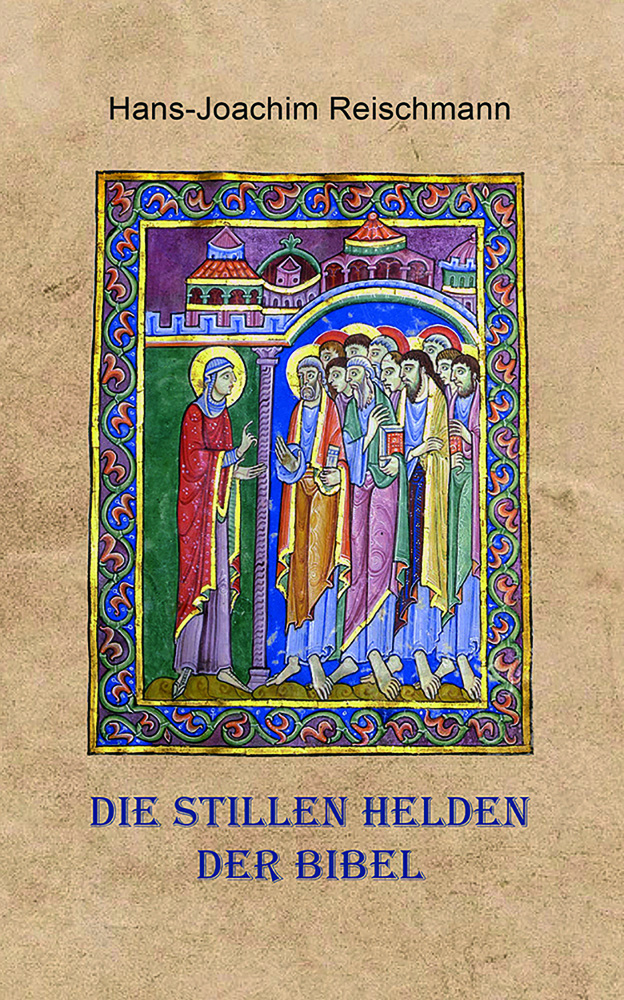 Hans-Joachim Reischmann
DIE STILLEN HELDEN
DER BIBEL